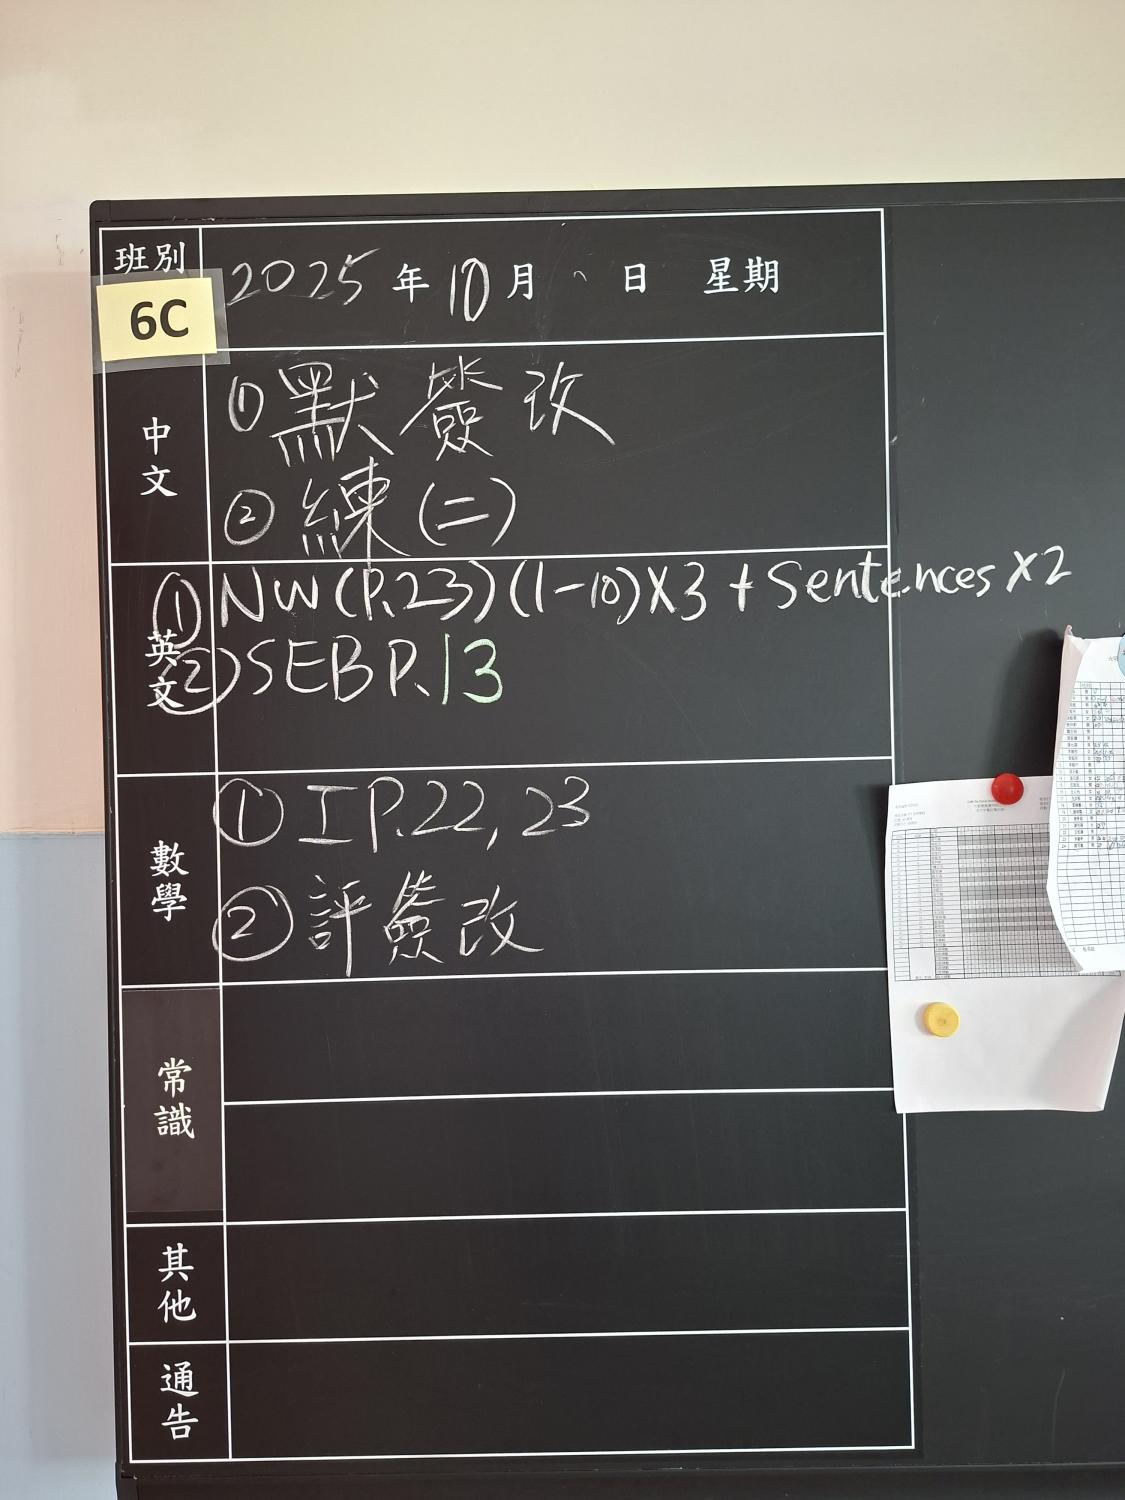 班別
6C
2025年10月、日 星期
中文
①默簽改
②練(二)
英文
①NW(P.23)(1-10)X3+SentencesX2
②SEB P.13
數學
①工P.22,23
②評簽改
常識
其他
通告